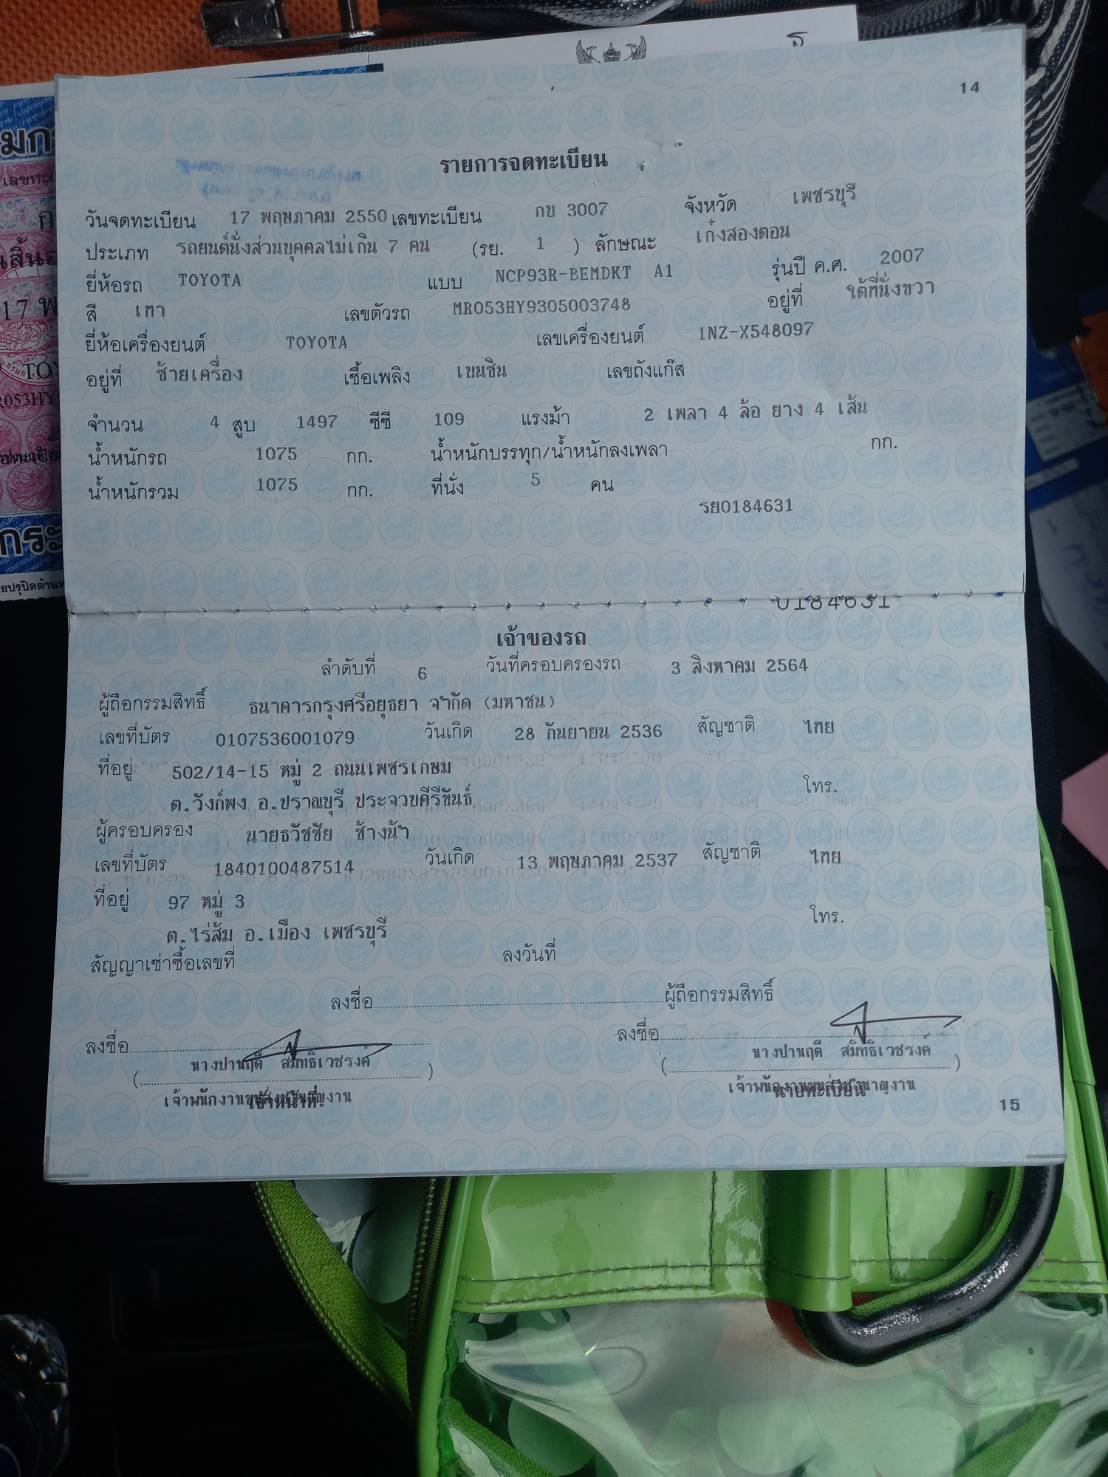 14
รายการจดทะเบียน
วันจดทะเบียน 17 พฤษภาคม 2550 เลขทะเบียน กข 3007 จังหวัด เพชรบุรี
ประเภท รถยนต์นั่งส่วนบุคคลไม่เกิน 7 คน (รย. 1 ) ลักษณะ เก๋งสองตอน
ยี่ห้อรถ TOYOTA แบบ NCP93R-BEMDKT A1 รุ่นปี ค.ศ. 2007
สี เทา เลขตัวรถ MR053HY9305003748 อยู่ที่ ใต้ที่นั่งขวา
ยี่ห้อเครื่องยนต์ TOYOTA เลขเครื่องยนต์ 1NZ-X548097
อยู่ที่ ซ้ายเครื่อง เชื้อเพลิง เบนซิน เลขถังแก๊ส
จำนวน 4 สูบ 1497 ซีซี 109 แรงม้า 2 เพลา 4 ล้อ ยาง 4 เส้น
น้ำหนักรถ 1075 กก. น้ำหนักบรรทุก/น้ำหนักลงเพลา กก.
น้ำหนักรวม 1075 กก. ที่นั่ง 5 คน
รย0184631
0184631
เจ้าของรถ
ลำดับที่ 6 วันที่ครอบครองรถ 3 สิงหาคม 2564
ผู้ถือกรรมสิทธิ์ ธนาคารกรุงศรีอยุธยา จำกัด (มหาชน)
เลขที่บัตร 0107536001079 วันเกิด 28 กันยายน 2536 สัญชาติ ไทย
ที่อยู่ 502/14-15 หมู่ 2 ถนนเพชรเกษม
ต.วังก์พง อ.ปราณบุรี ประจวบคีรีขันธ์ โทร.
ผู้ครอบครอง นายธวัชชัย ช้างน้ำ
เลขที่บัตร 1840100487514 วันเกิด 13 พฤษภาคม 2537 สัญชาติ ไทย
ที่อยู่ 97 หมู่ 3
ต.ไร่ส้ม อ.เมือง เพชรบุรี โทร.
สัญญาเช่าซื้อเลขที่ ลงวันที่
ลงชื่อ ผู้ถือกรรมสิทธิ์
ลงชื่อ ลงชื่อ
นางปานฤดี สมิทธิเวชรงค์ นางปานฤดี สมิทธิเวชรงค์
( ) ( )
เจ้าหน้าที่ นายทะเบียน
15